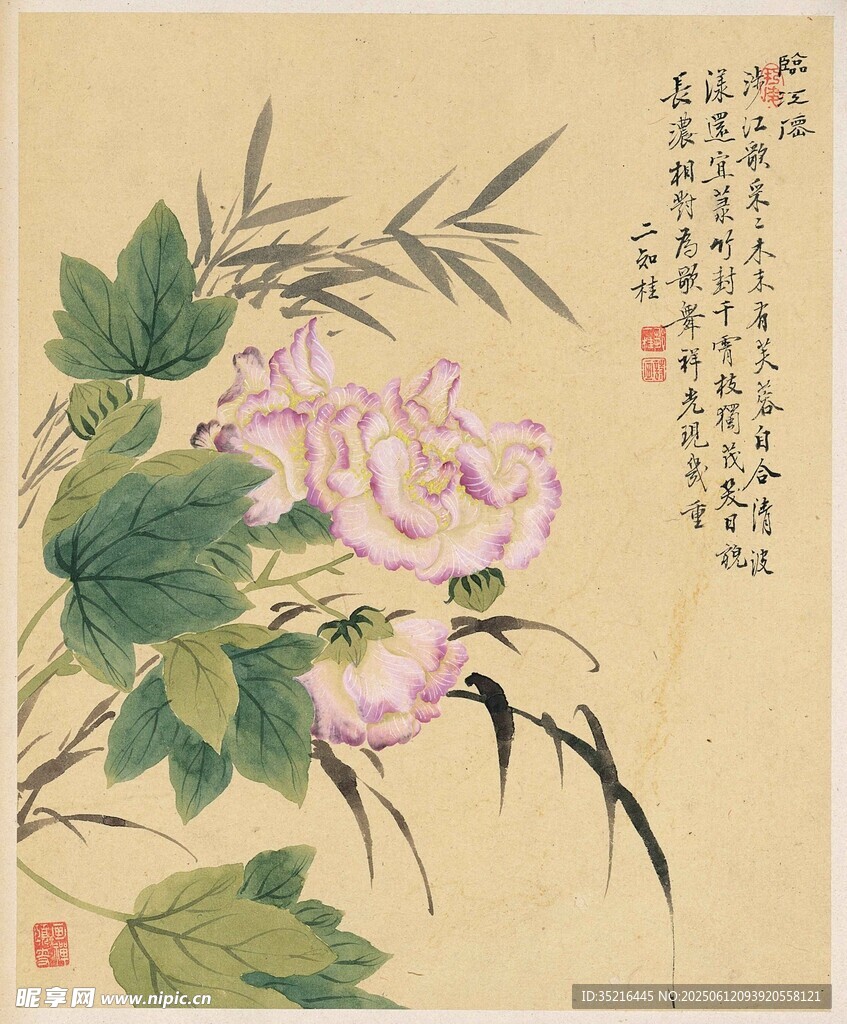 臨江僊
涉江歌采〻木末有芙蓉自合清波
漾還宜菉竹封干霄枝獨茂笑日
長濃相對為歌舞祥光現幾重
二知桂
昵享网 www.nipic.cn
ID:35216445 NO:20250612093920558121